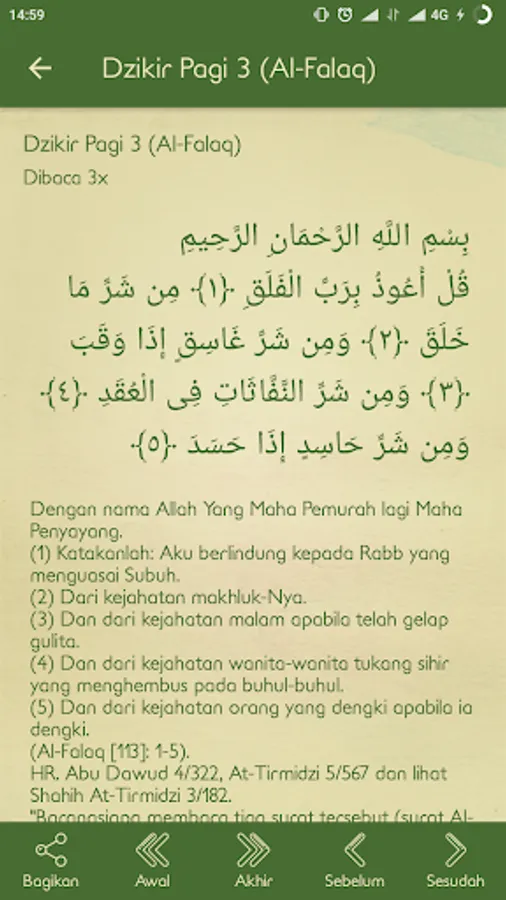 14:59
4G
Dzikir Pagi 3 (Al-Falaq)
Dzikir Pagi 3 (Al-Falaq)
Dibaca 3x
بِسْمِ اللَّهِ الرَّحْمَانِ الرَّحِيمِ
قُلْ أَعُوذُ بِرَبَّ الْفَلَقِ ﴿١﴾ مِن شَرَّ مَا
خَلَقَ ﴿٢﴾ وَمِن شَرَّ غَاسِقٍ إِذَا وَقَبَ
﴿٣﴾ وَمِن شَرَّ النَّفَّاثَاتِ فِى الْعُقَدِ ﴿٤﴾
وَمِن شَرَّ حَاسِدٍ إِذَا حَسَدَ ﴿٥﴾
Dengan nama Allah Yang Maha Pemurah lagi Maha
Penyayang.
(1) Katakanlah: Aku berlindung kepada Rabb yang
menguasai Subuh.
(2) Dari kejahatan makhluk-Nya.
(3) Dan dari kejahatan malam apabila telah gelap
gulita.
(4) Dan dari kejahatan wanita-wanita tukang sihir
yang menghembus pada buhul-buhul.
(5) Dan dari kejahatan orang yang dengki apabila ia
dengki.
(Al-Falaq [113]: 1-5).
HR. Abu Dawud 4/322, At-Tirmidzi 5/567 dan lihat
Shahih At-Tirmidzi 3/182.
"Barangsiapa membaca tiga surat tersebut (surat Al-
Bagikan
Awal
Akhir
Sebelum
Sesudah